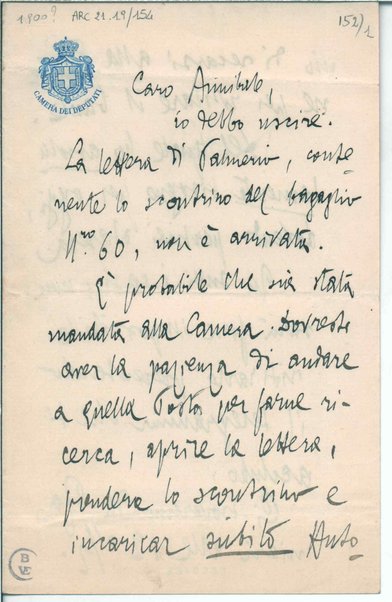 1900? ARC 21.19/154 152/1
CAMERA DEI DEPUTATI
Caro Annibale,
io debbo uscire.
La lettera di Palmerio, conte-
nente lo scontrino del bagaglio
Nro 60, non è arrivata.
È probabile che sia stata
mandata alla Camera. Dovreste
aver la pazienza di andare
a quella Posta per farne ri-
cerca, aprire la lettera,
prendere lo scontrino e
incaricar subito Anto
BVE